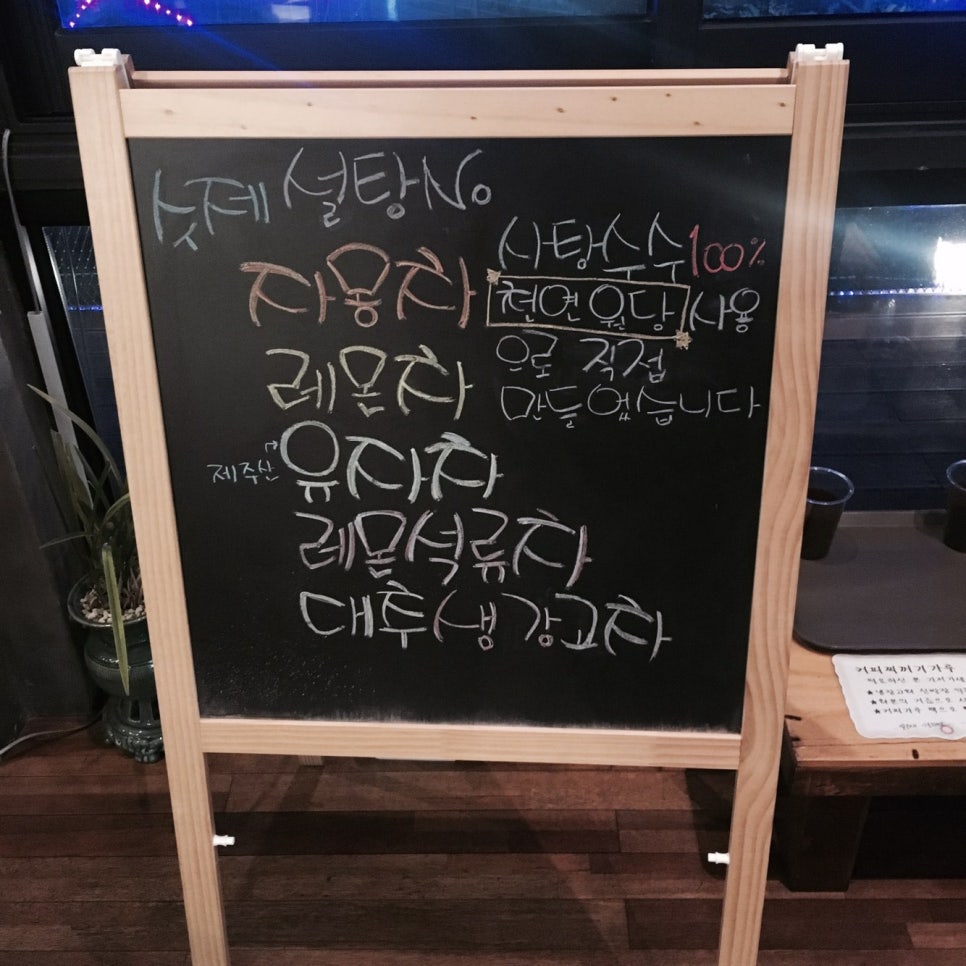 수제 설탕No
자몽차
레몬차
제주산 유자차
레몬석류차
대추생강고차
사탕수수 100%
천연원당 사용
으로 직접
만들었습니다
커피찌꺼기가루
필요하신 분 가져가세